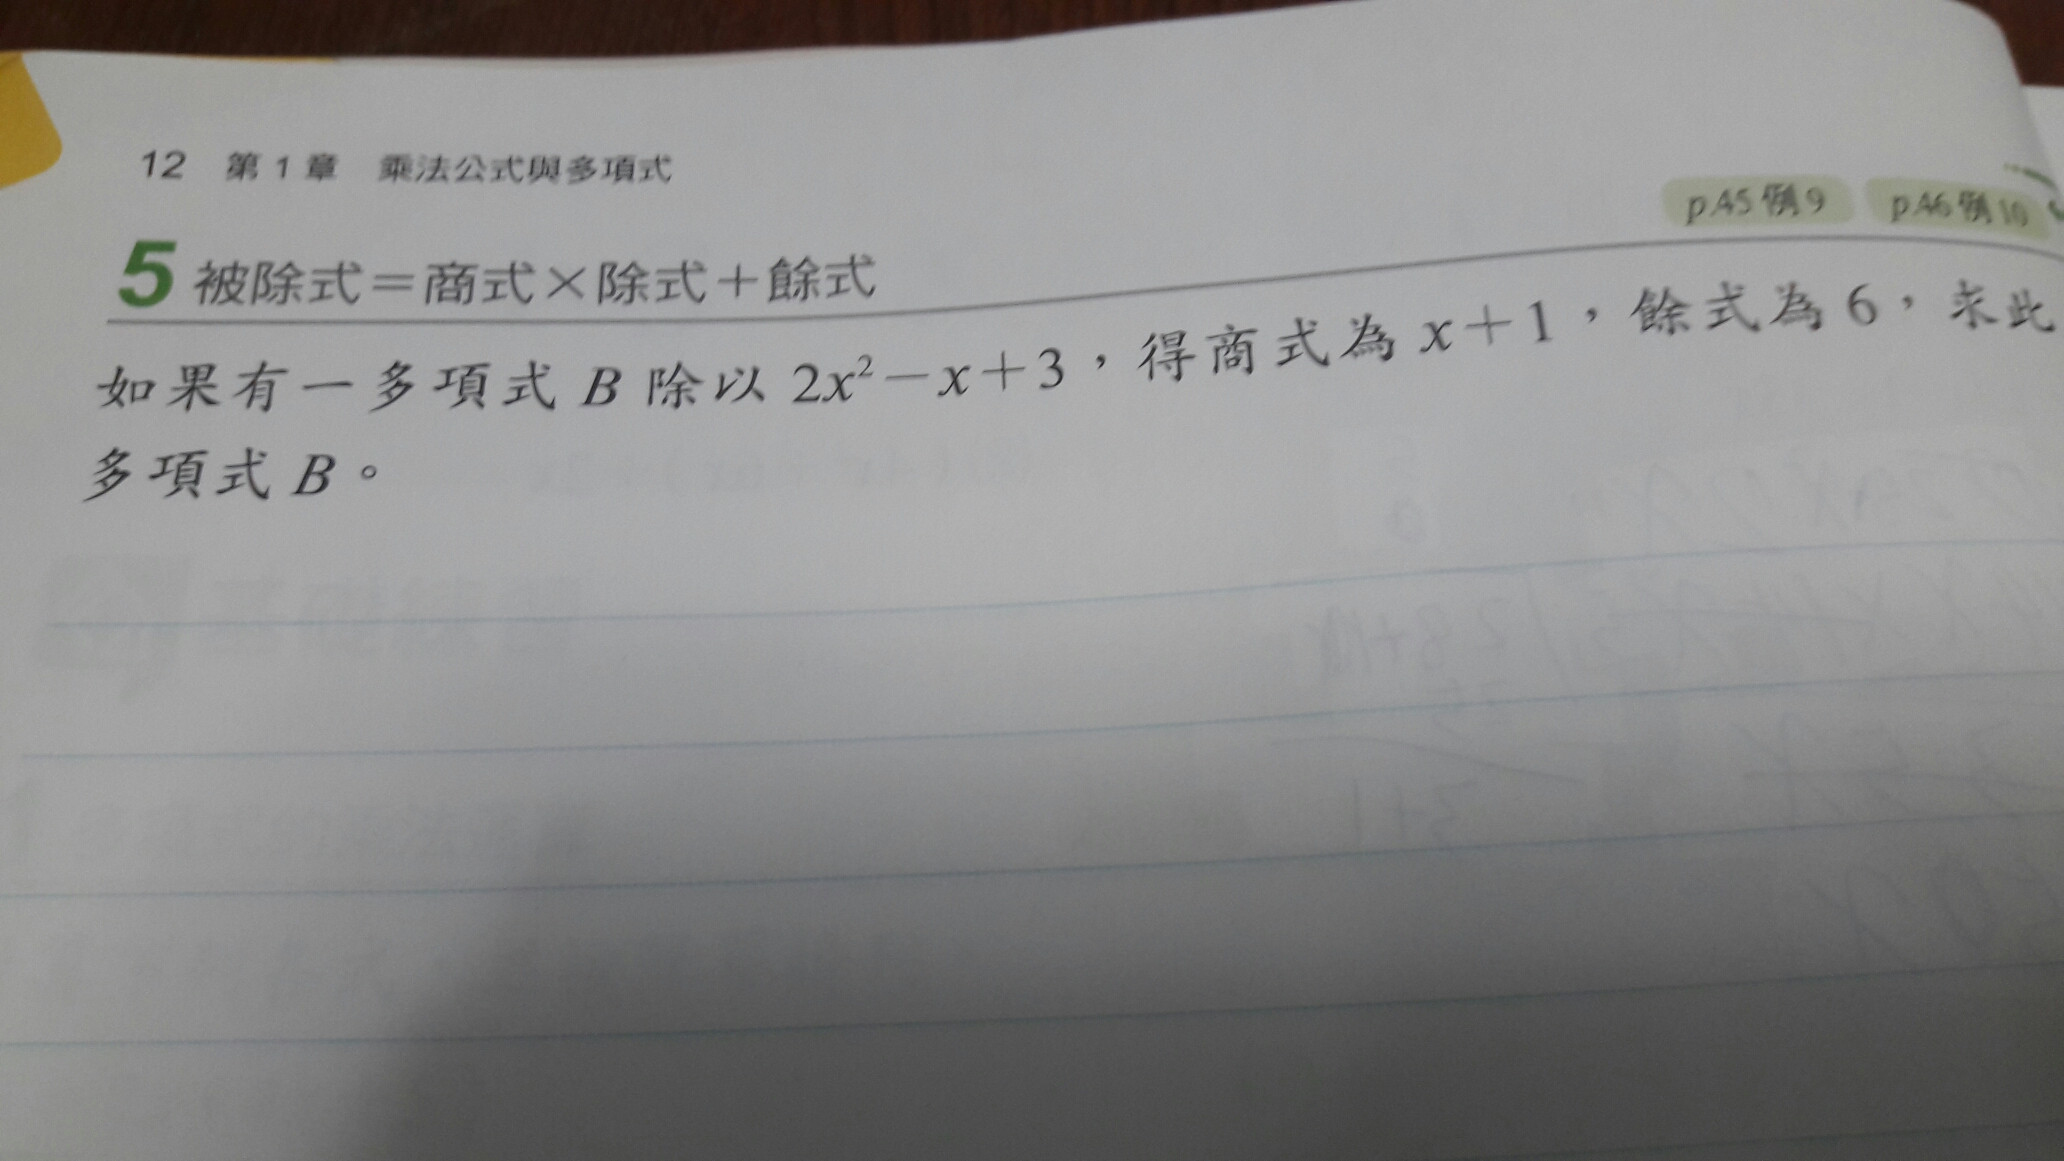 12 第1章 乘法公式與多項式
p.45例9 p.46例10
5 被除式＝商式×除式＋餘式
如果有一多項式 B 除以 2x²－x＋3，得商式為 x＋1，餘式為 6，求此
多項式 B。